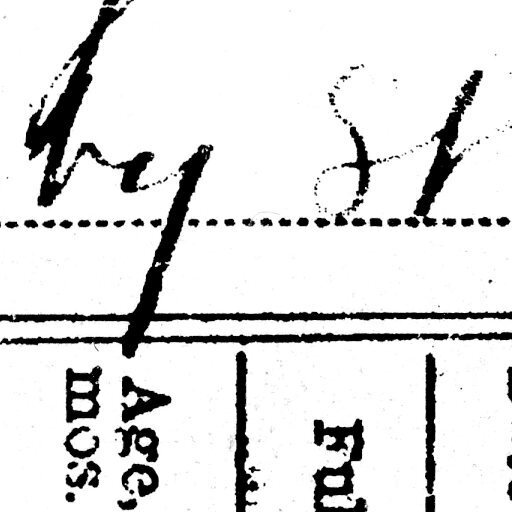 by St
Age,
mos.
Ful